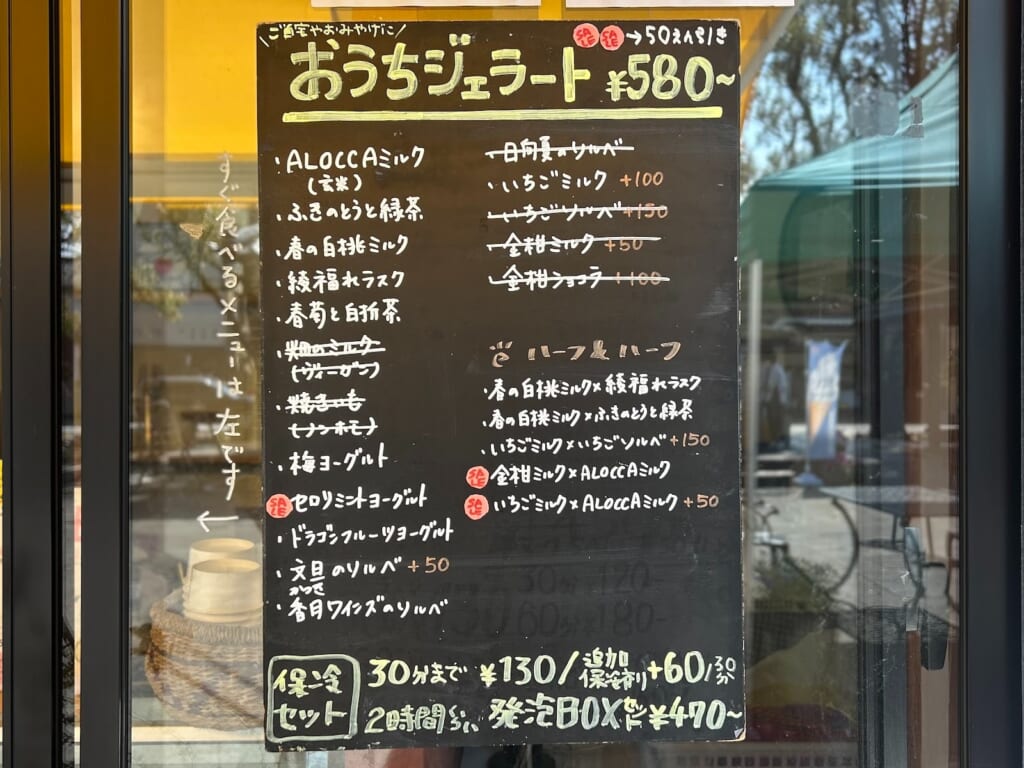 ご自宅やおみやげに
おうちジェラート ¥580~
SALE SALE →50えんびき
・ALOCCAミルク
(玄米)
・ふきのとうと緑茶
・春の白桃ミルク
・綾福れラスク
・春菊と白折茶
・畑のミルク
(ヴィーガン)
・焼きいも
(ノンホモ)
・梅ヨーグルト
SALE セロリミントヨーグルト
・ドラゴンフルーツヨーグルト
・文旦のソルベ+50
・香月ワインズのソルベ
かつき
・日向夏のソルベ
・いちごミルク +100
・いちごソルベ+150
・金柑ミルク+50
・金柑ショコラ+100
ハーフ&ハーフ
・春の白桃ミルク×綾福れラスク
・春の白桃ミルク×ふきのとうと緑茶
・いちごミルク×いちごソルベ+150
SALE 金柑ミルク×ALOCCAミルク
SALE いちごミルク×ALOCCAミルク+50
保冷セット
30分まで ¥130/追加保冷剤+60/30分
2時間くらい 発泡BOXセット¥470~
すぐ食べるメニューは左です
←